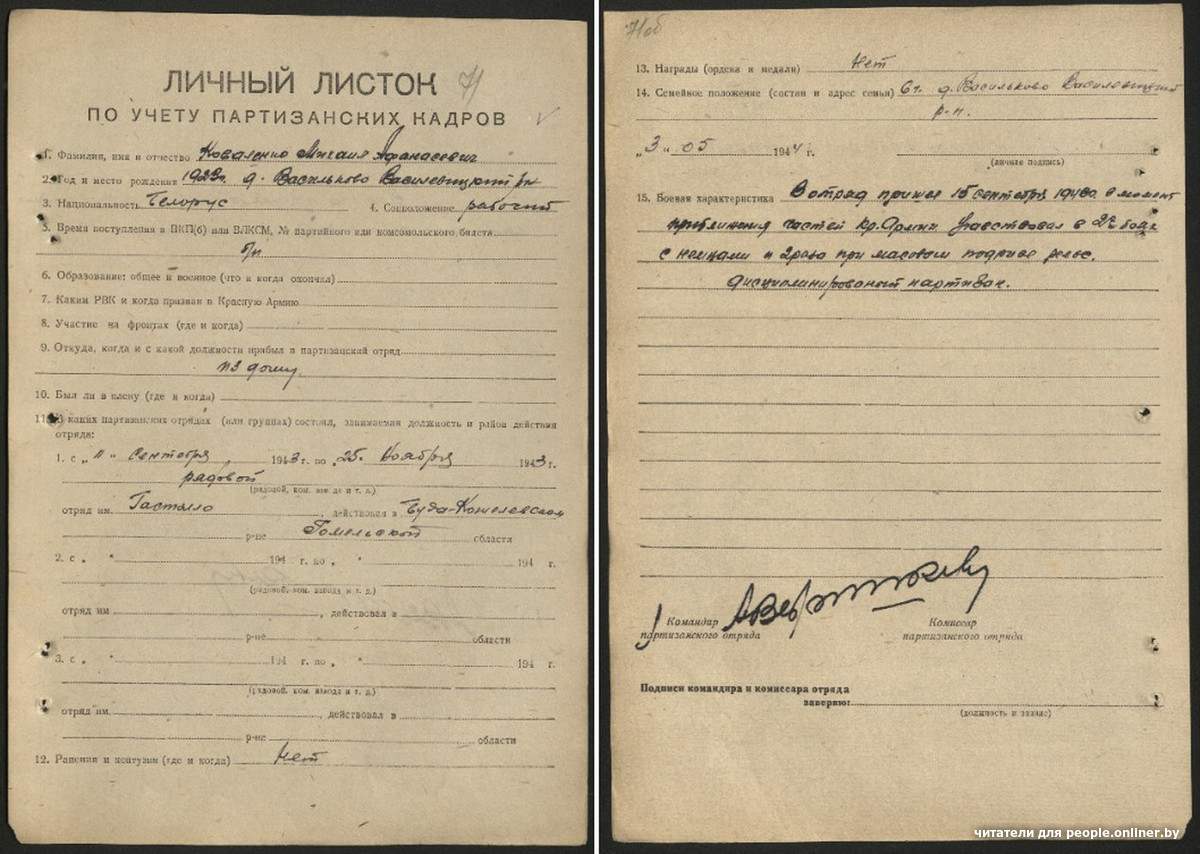 71
ЛИЧНЫЙ ЛИСТОК
ПО УЧЕТУ ПАРТИЗАНСКИХ КАДРОВ
1. Фамилия, имя и отчество Коваленко Михаил Афанасевич
2. Год и место рождения 1923г. д. Васильково Василевицкий рн
3. Национальность Белорус 4. Соцположение рабочий
5. Время поступления в ВКП(б) или ВЛКСМ, № партийного или комсомольского билета
б/п
6. Образование: общее и военное (что и когда окончил)
7. Каким РВК и когда призван в Красную Армию
8. Участие на фронтах (где и когда)
9. Откуда, когда и с какой должности прибыл в партизанский отряд
из дому
10. Был ли в плену (где и когда)
11. В каких партизанских отрядах (или группах) состоял, занимаемая должность и район действия
отряда:
1. с „ " Сентебря 1943 г. по „25. Ноября 1943 г.
рядовой
(рядовой, ком. взвода и т. д.)
отряд им. Гастэлло, действовал в Буда-Кошелевском
р-не Гомельской области
2. с „ " 194 г. по „ " 194 г.
(рядовой, ком. взвода и т. д.)
отряд им , действовал в
р-не области
3. с „ " 194 г. по „ " 194 г.
(рядовой, ком. взвода и т. д.)
отряд им. , действовал в
р-не области
12. Ранения и контузии (где и когда) Нет
71об
13. Награды (ордена и медали) Нет
14. Семейное положение (состав и адрес семьи) д. Васильково Василевицкий
р.н.
„3" 05 1944 г.
(личная подпись)
15. Боевая характеристика В отряд пришел 15 сентебря 1943г. в момент
приближения частей Кр. Армии учавствовал в 2х боях
с немцами и 2 раза при масовом подриве рельс.
Дисциплинированый партизан.
Командир
партизанского отряда
Комиссар
партизанского отряда
Подписи командира и комиссара отряда
заверяю:
(должность и звание)
читатели для people.onliner.by